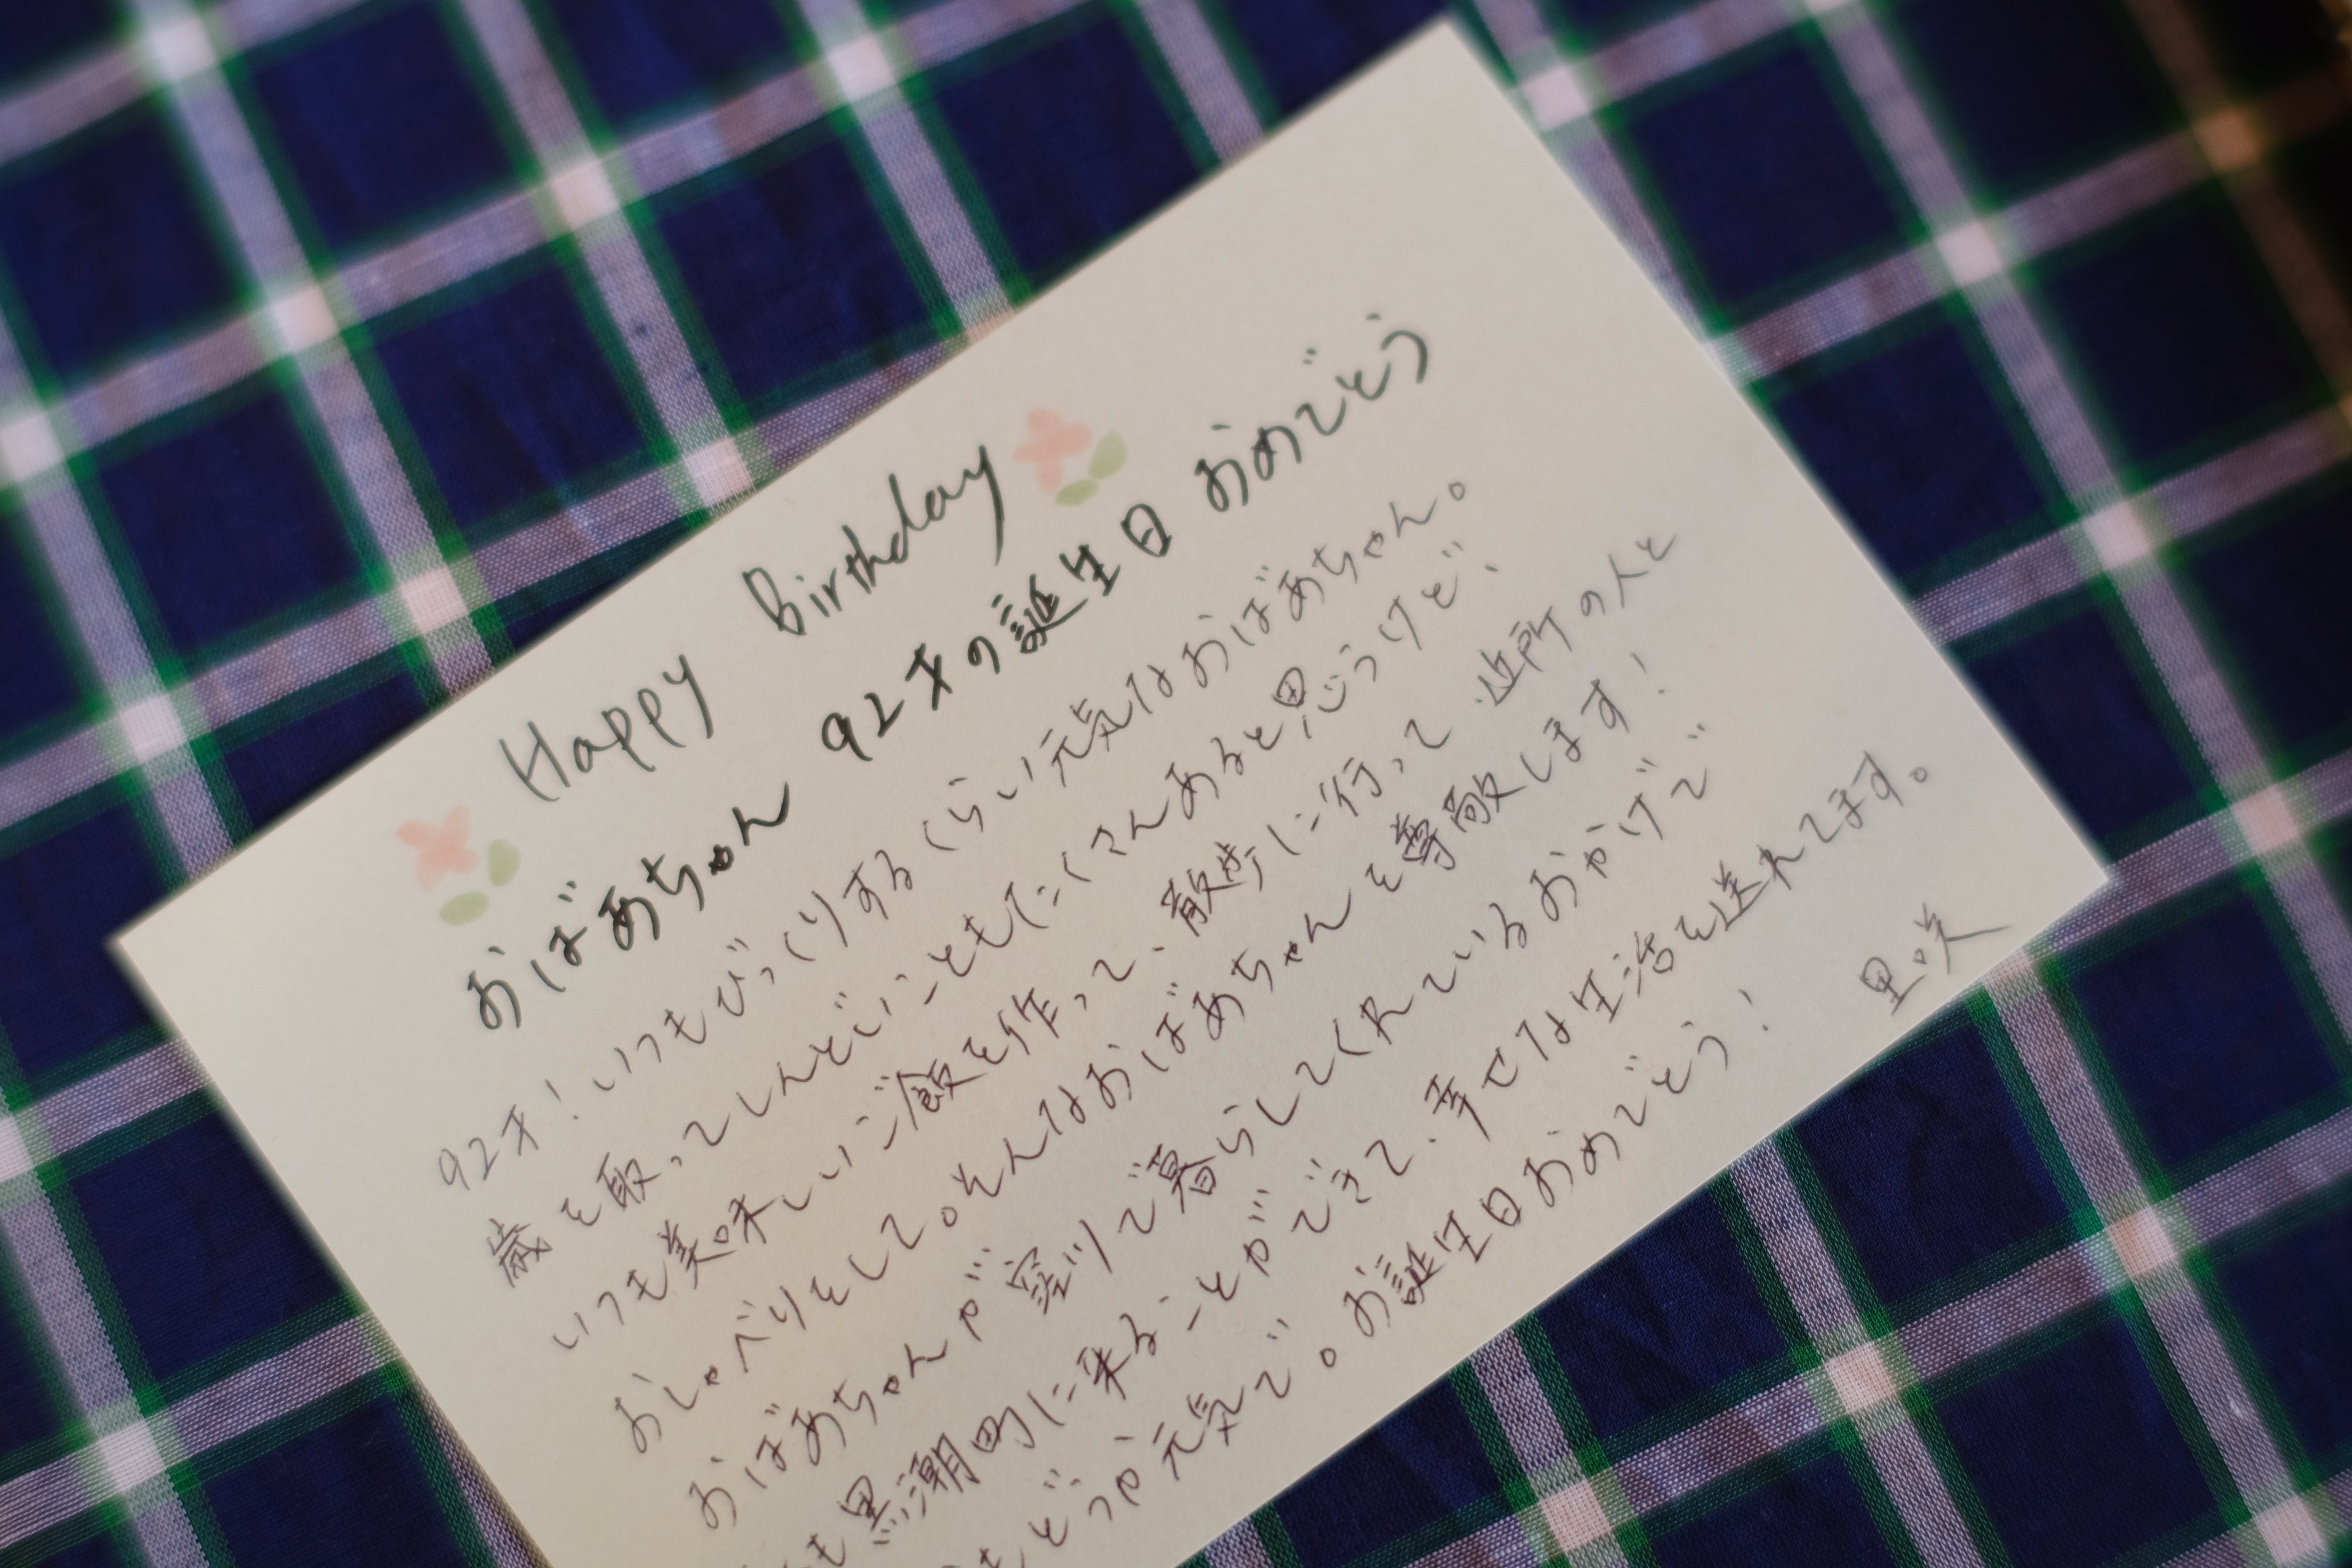 Happy Birthday
おばあちゃん 92才の誕生日 おめでとう
92才！いつもびっくりするくらい元気なおばあちゃん。
歳を取ってしんどいこともたくさんあると思うけど、
いつも美味しいご飯を作って、散歩に行って、近所の人と
おしゃべりをして。そんなおばあちゃんを尊敬します！
おばあちゃんが窪川で暮らしてくれているおかげで
も黒潮町に来ることができて、幸せな生活を送れてます。
もどうか元気で。お誕生日おめでとう！ 里咲